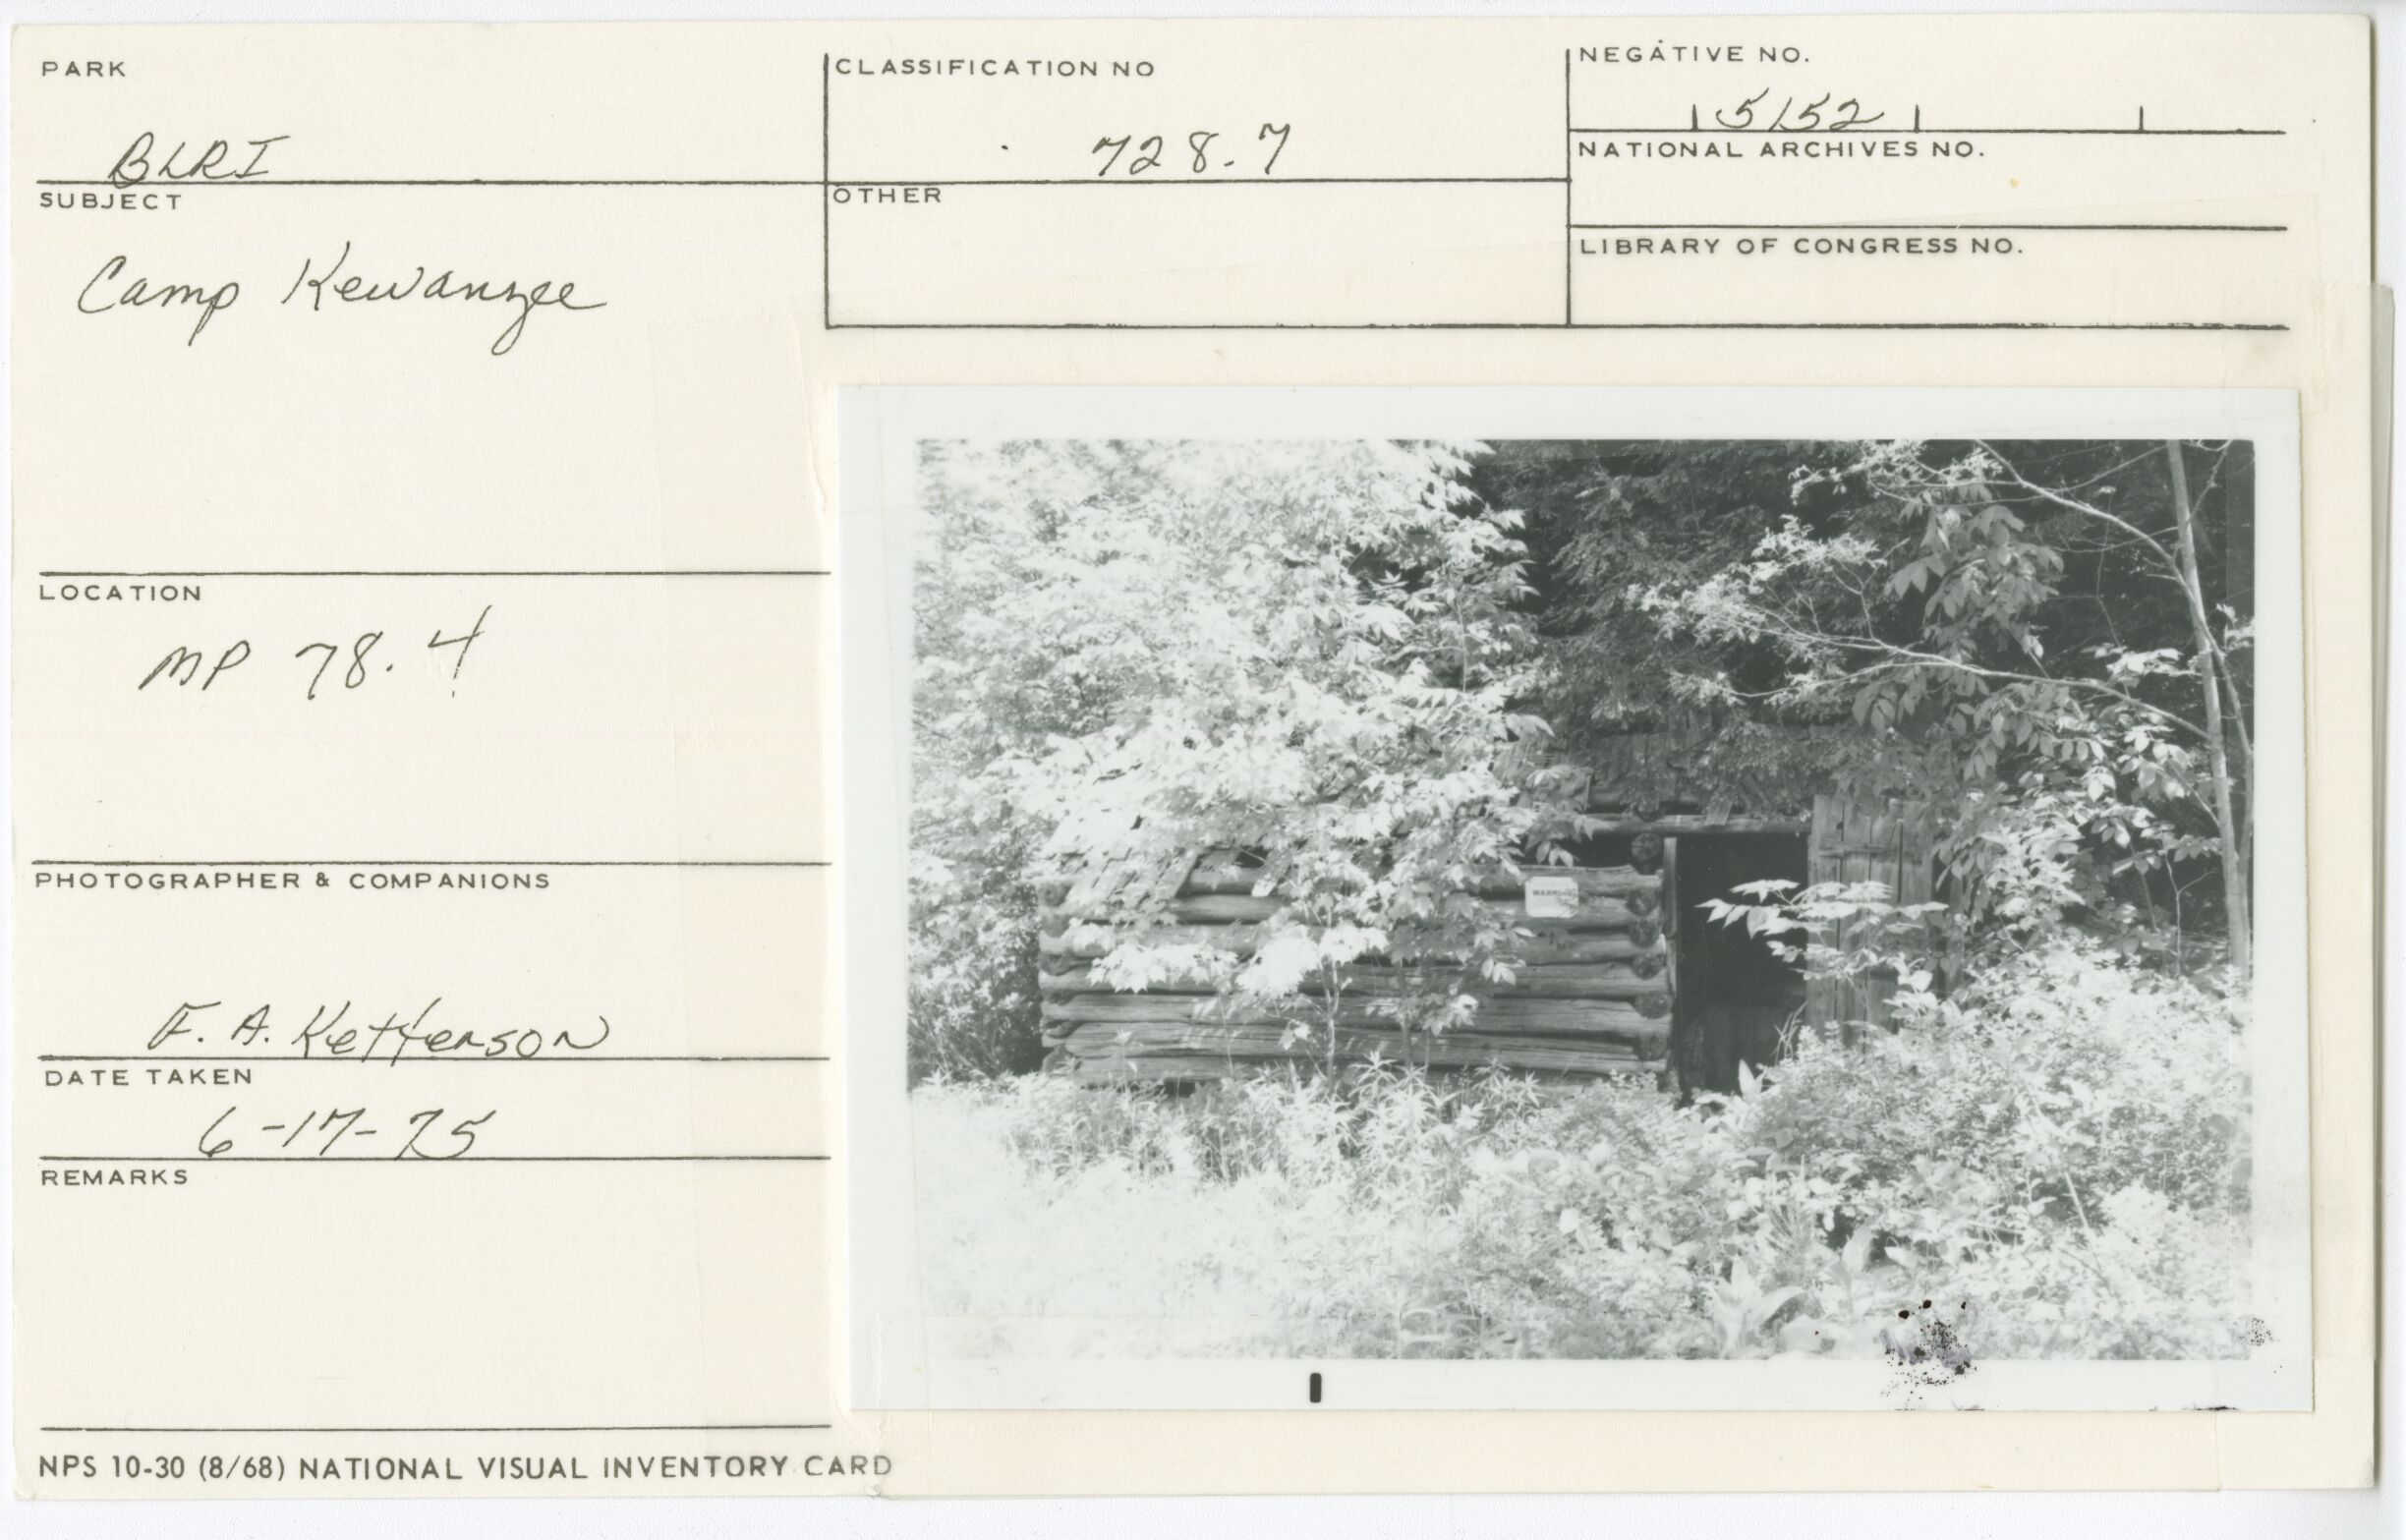 PARK
BLRI
CLASSIFICATION NO
728.7
NEGATIVE NO.
5152
NATIONAL ARCHIVES NO.
SUBJECT
Camp Kewanzee
OTHER
LIBRARY OF CONGRESS NO.
LOCATION
MP 78.4
WARNING
PHOTOGRAPHER & COMPANIONS
F. A. Ketterson
DATE TAKEN
6-17-75
REMARKS
NPS 10-30 (8/68) NATIONAL VISUAL INVENTORY CARD